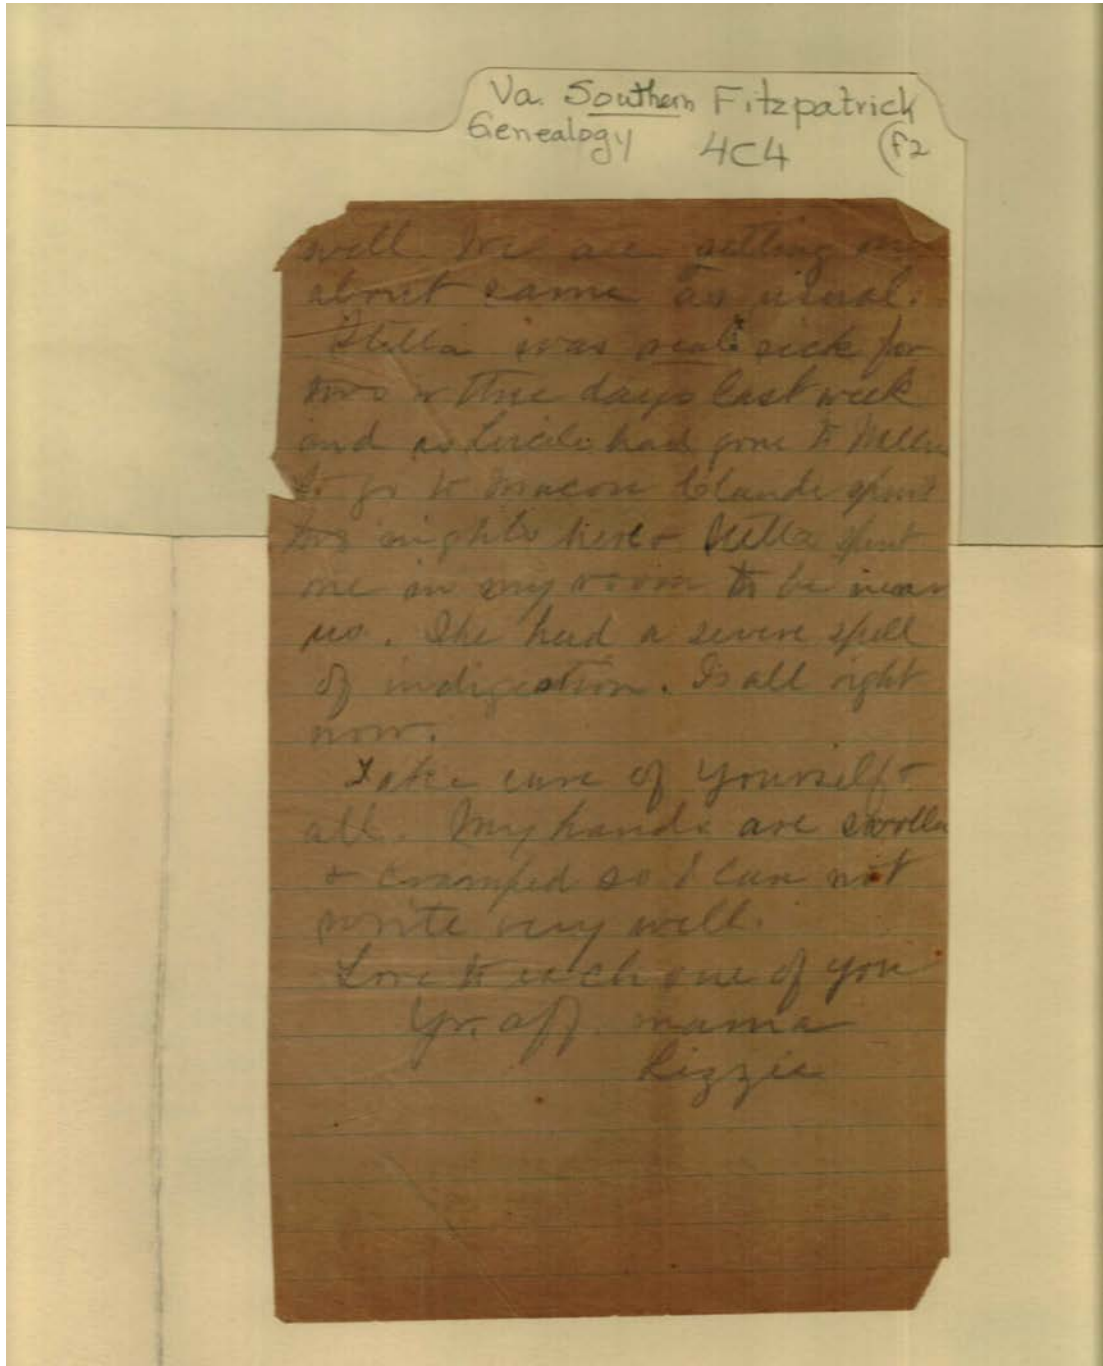 Va. Southern Fitzpatrick
Genealogy 4C4 F2
well. We are getting on
about same as usual.
Stella was real sick for
two or three days last week
and as Lucile had gone to
to go to Macon Claude spent
two nights here + Stella spent
one in my room to be near
us. She had a severe spell
of indigestion. Is all right
now.
Take care of yourself +
all. My hands are swollen
+ cramped so I can not
write very well.
Love to each one of you
Yr. aff. mama
Lizzie